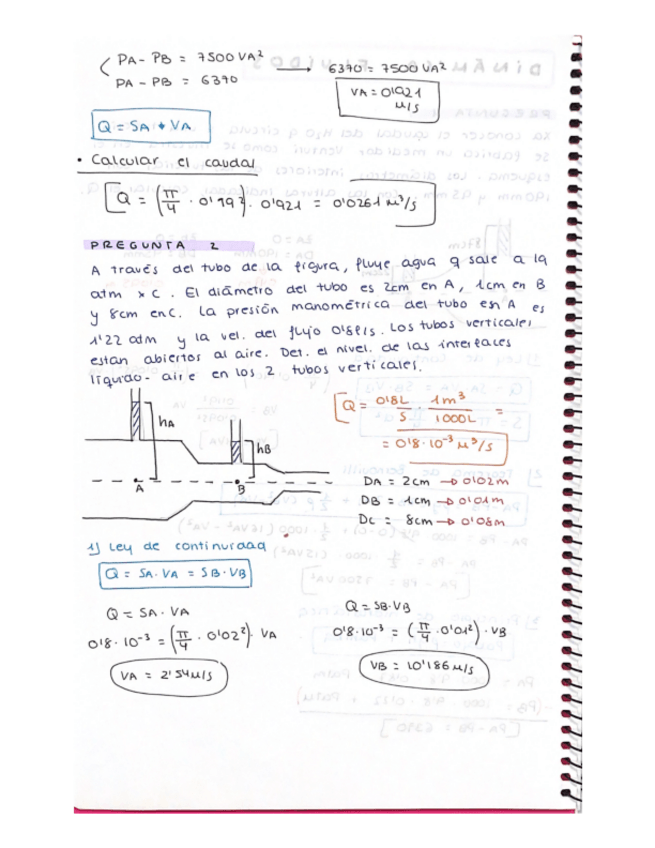 PA - PB = 7500 VA²
PA - PB = 6370
→ 6370 = 7500 VA²
VA = 0'921 m/s
Q = SA * VA
• Calcular el caudal
Q = (π/4 · 0'19²) · 0'921 = 0'0261 m³/s
PREGUNTA 2
A través del tubo de la figura, fluye agua q sale a la
atm x C. El diámetro del tubo es 2cm en A, 1cm en B
y 8cm en C. La presión manométrica del tubo en A es
1'22 atm y la vel. del flujo 0'8 l/s. Los tubos verticales
estan abiertos al aire. Det. el nivel de las interfases
líquido-aire en los 2 tubos verticales.
hA
hB
A
B
Q = 0'8L/s · 1m³/1000L =
= 0'8·10⁻³ m³/s
DA = 2cm → 0'02m
DB = 1cm → 0'01m
DC = 8cm → 0'08m
1) Ley de continuidad
Q = SA·VA = SB·VB
Q = SA·VA
0'8·10⁻³ = (π/4 · 0'02²) · VA
VA = 2'54 m/s
Q = SB·VB
0'8·10⁻³ = (π/4 · 0'01²) · VB
VB = 10'186 m/s